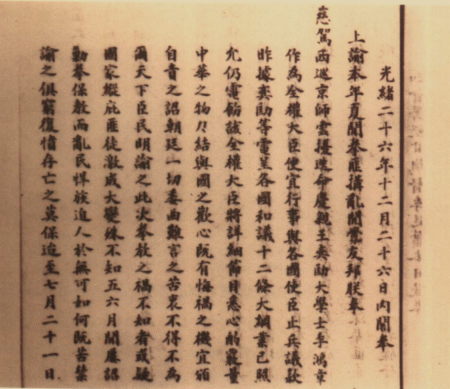 光緒二十六年十二月二十六日内閣奉
上諭本年夏間拳匪搆亂開釁友邦朕奉
慈駕西巡京師雲擾迭命慶親王奕劻大學士李鴻章
作為全權大臣便宜行事與各國使臣止兵議款
昨據奕劻等電呈各國和議十二條大綱業已照
允仍電飭該全權大臣將詳細節目悉心酌覈量
中華之物力結與國之歡心既有悔禍之機宜頒
自責之詔朝廷一切委曲難言之苦衷不得不為
爾天下臣民明諭之此次拳教之禍不知者或疑
國家縱庇匪徒激成大變殊不知五六月間屢詔
勦拳保教而亂民悍族迫人於無可如何既苦禁
諭之俱窮復憤存亡之莫保迨至七月二十一日